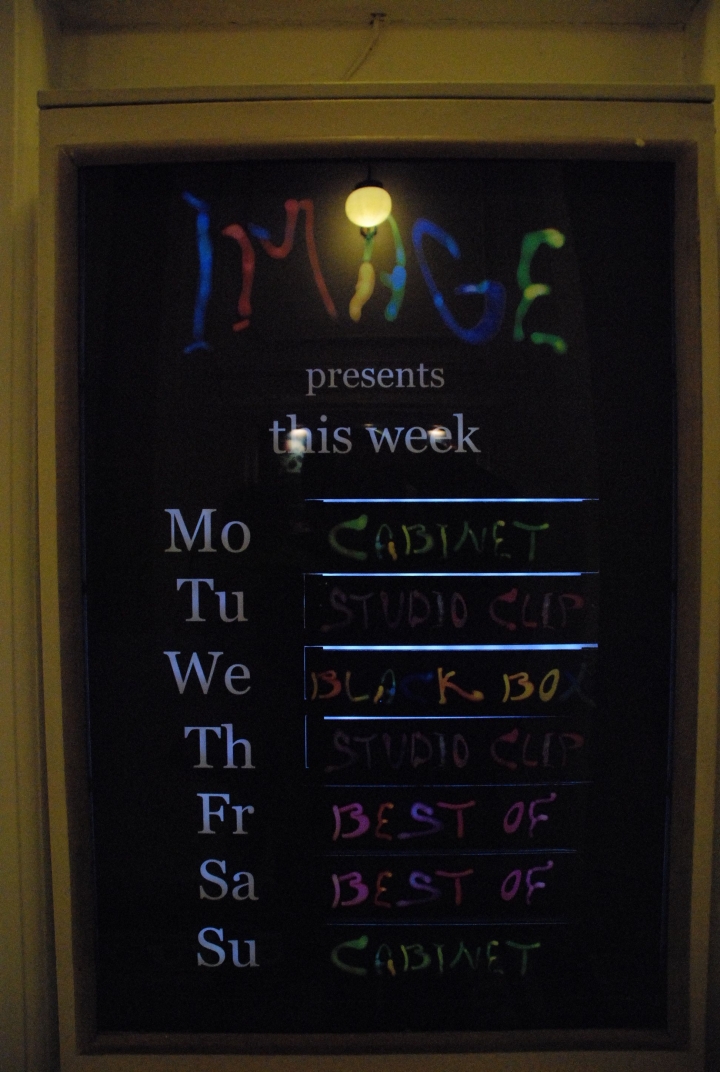 IMAGE
presents
this week
Mo CABINET
Tu STUDIO CLIP
We BLACK BOX
Th STUDIO CLIP
Fr BEST OF
Sa BEST OF
Su CABINET